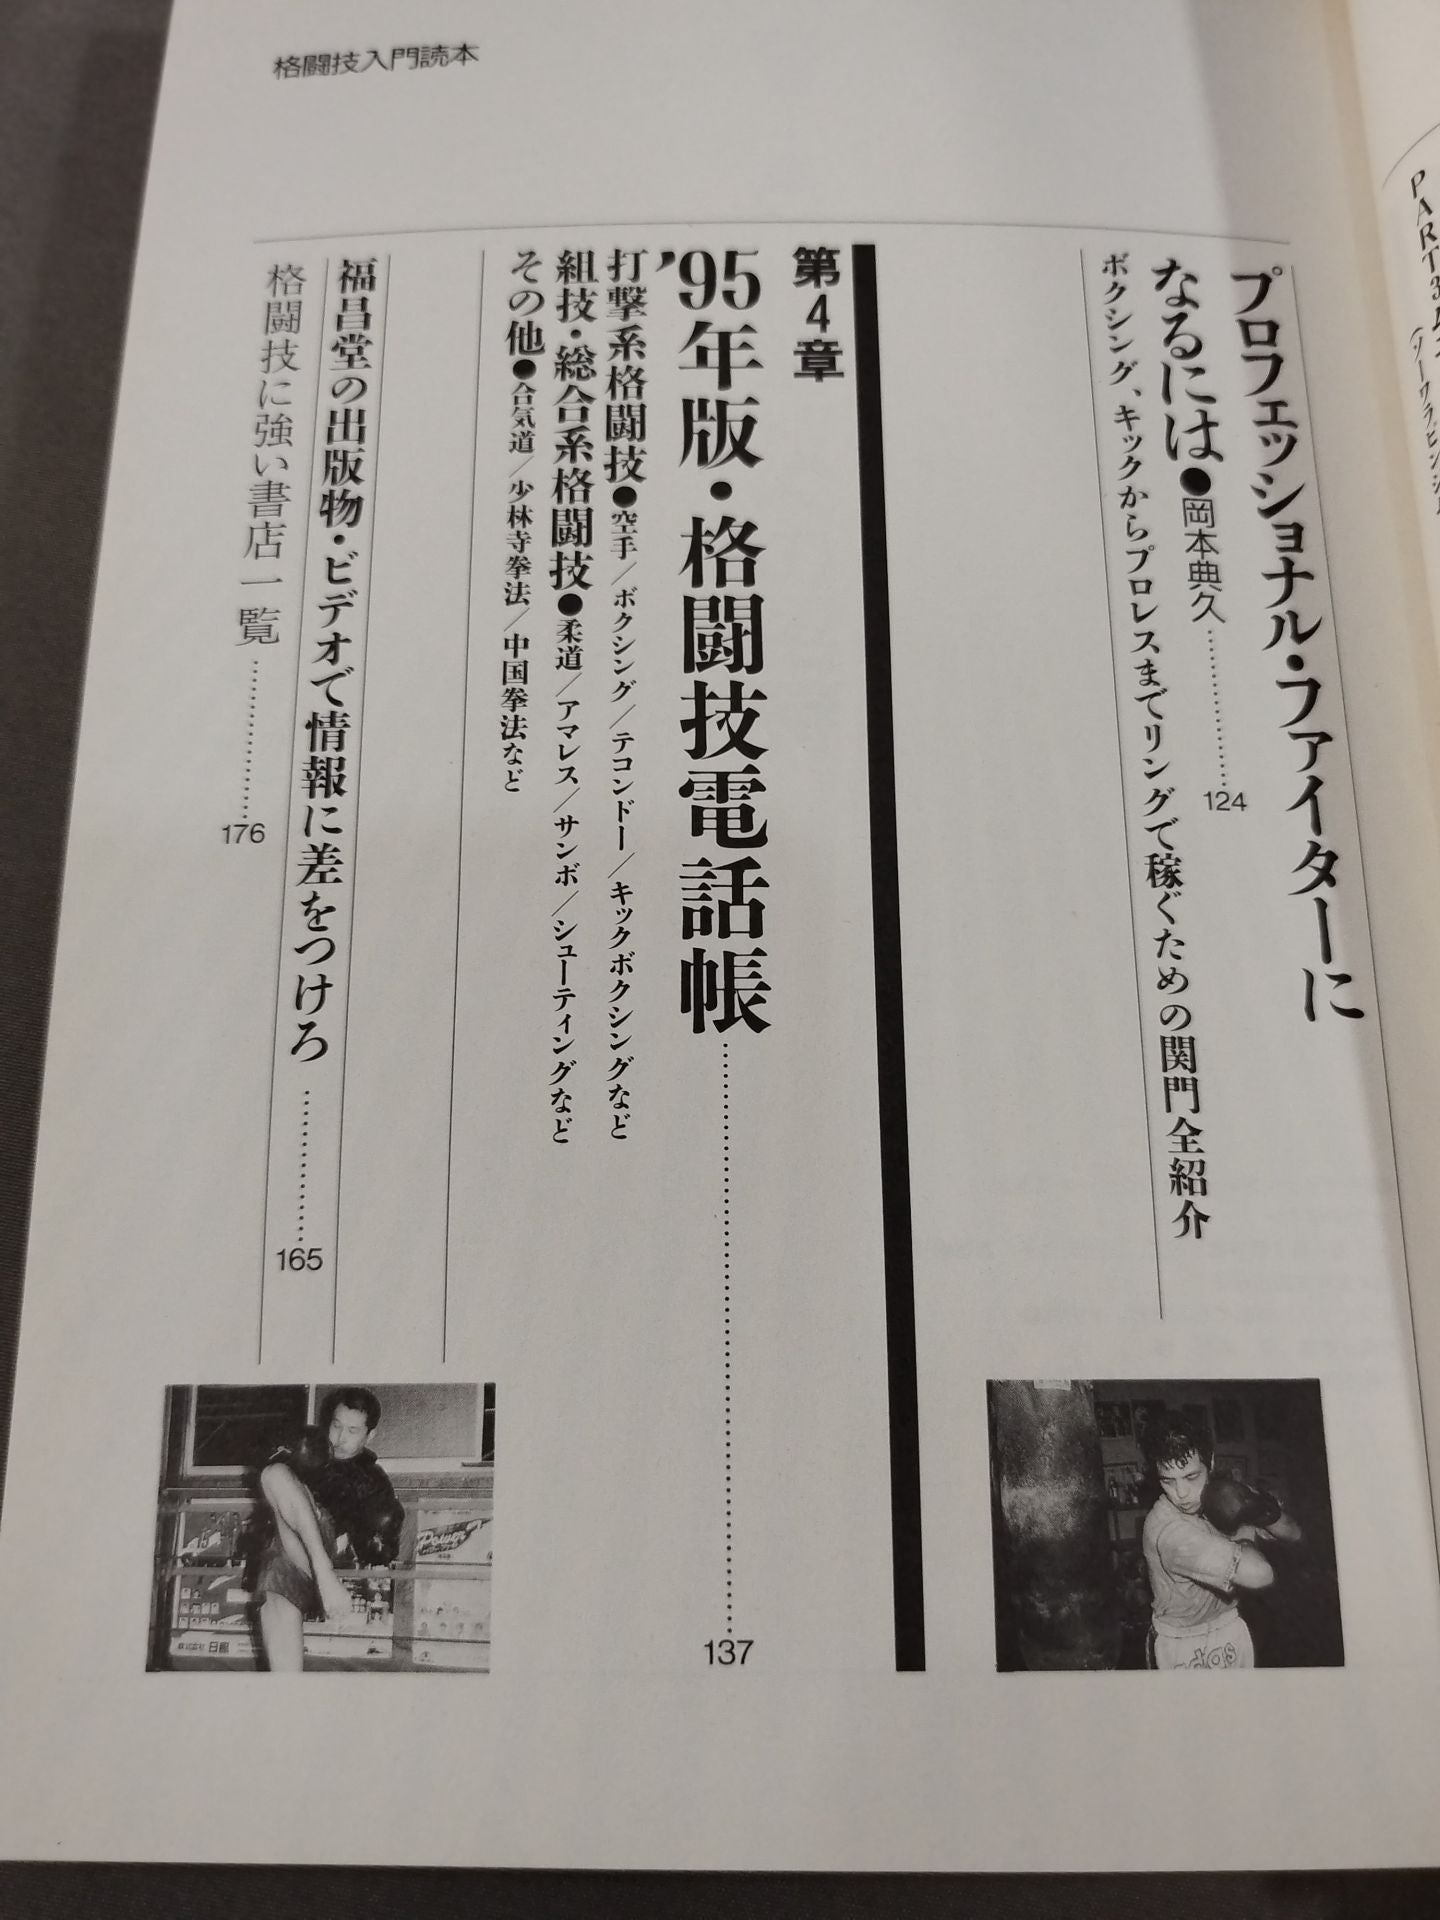 格闘技入門読本
プロフェッショナル・ファイターに
なるには●岡本典久…………124
ボクシング、キックからプロレスまでリングで稼ぐための関門全紹介
第4章
'95年版・格闘技電話帳…………137
打撃系格闘技●空手/ボクシング/テコンドー/キックボクシングなど
組技・総合系格闘技●柔道/アマレス/サンボ/シューティングなど
その他●合気道/少林寺拳法/中国拳法など
福昌堂の出版物・ビデオで情報に差をつけろ…………165
格闘技に強い書店一覧…………176